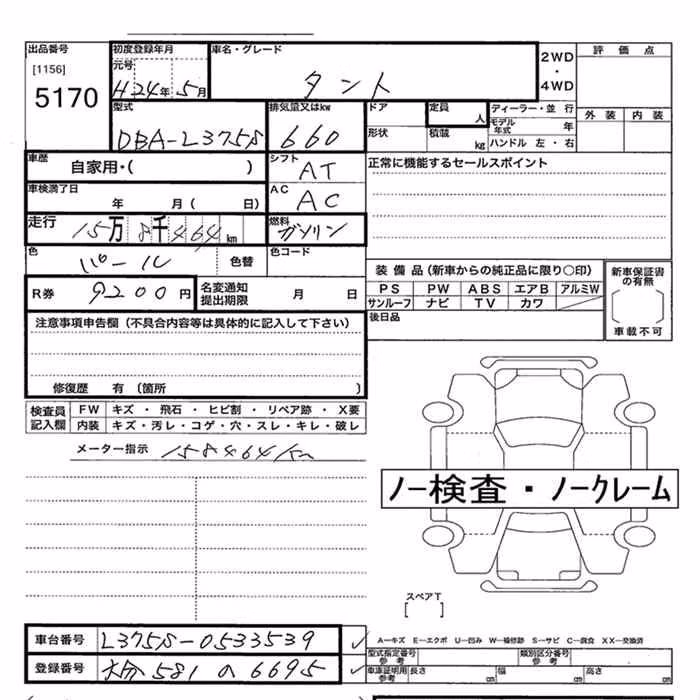 出品番号
[1156]
5170
初度登録年月
元号
H24年 5月
車名・グレード
タント
2WD
・
4WD
評価点
外装 内装
型式
DBA-L375S
排気量又はkw
660
ドア
形状
定員
人
積載
kg
ディーラー・並 行
モデル年式 年
ハンドル 左・右
車歴
自家用・( )
シフト
AT
正常に機能するセールスポイント
車検満了日
年 月( 日)
AC
AC
走行
15万8千464km
燃料
ガソリン
色
パール
色替
色コード
R券 9200円
名変通知
提出期限
月 日
装備品(新車からの純正品に限り○印)
PS PW ABS エアB アルミW
サンルーフ ナビ TV カワ
新車保証書
の有無
車載不可
後日品
注意事項申告欄(不具合内容等は具体的に記入して下さい)
修復歴 有(箇所 )
検査員
記入欄
FW キズ・飛石・ヒビ割・リペア跡・X要
内装 キズ・汚レ・コゲ・穴・スレ・キレ・破レ
メーター指示 158464km
ノー検査・ノークレーム
スペアT
[ ]
車台番号 L375S-0533539 ✓
登録番号 大分581 の 6695 ✓
A―キズ E―エクボ U―凹み W―補修跡 S―サビ C―腐食 XX―交換済
型式指定番号
参考
類別区分番号
参考
車庫証明用
参考
長さ cm 幅 cm 高さ cm